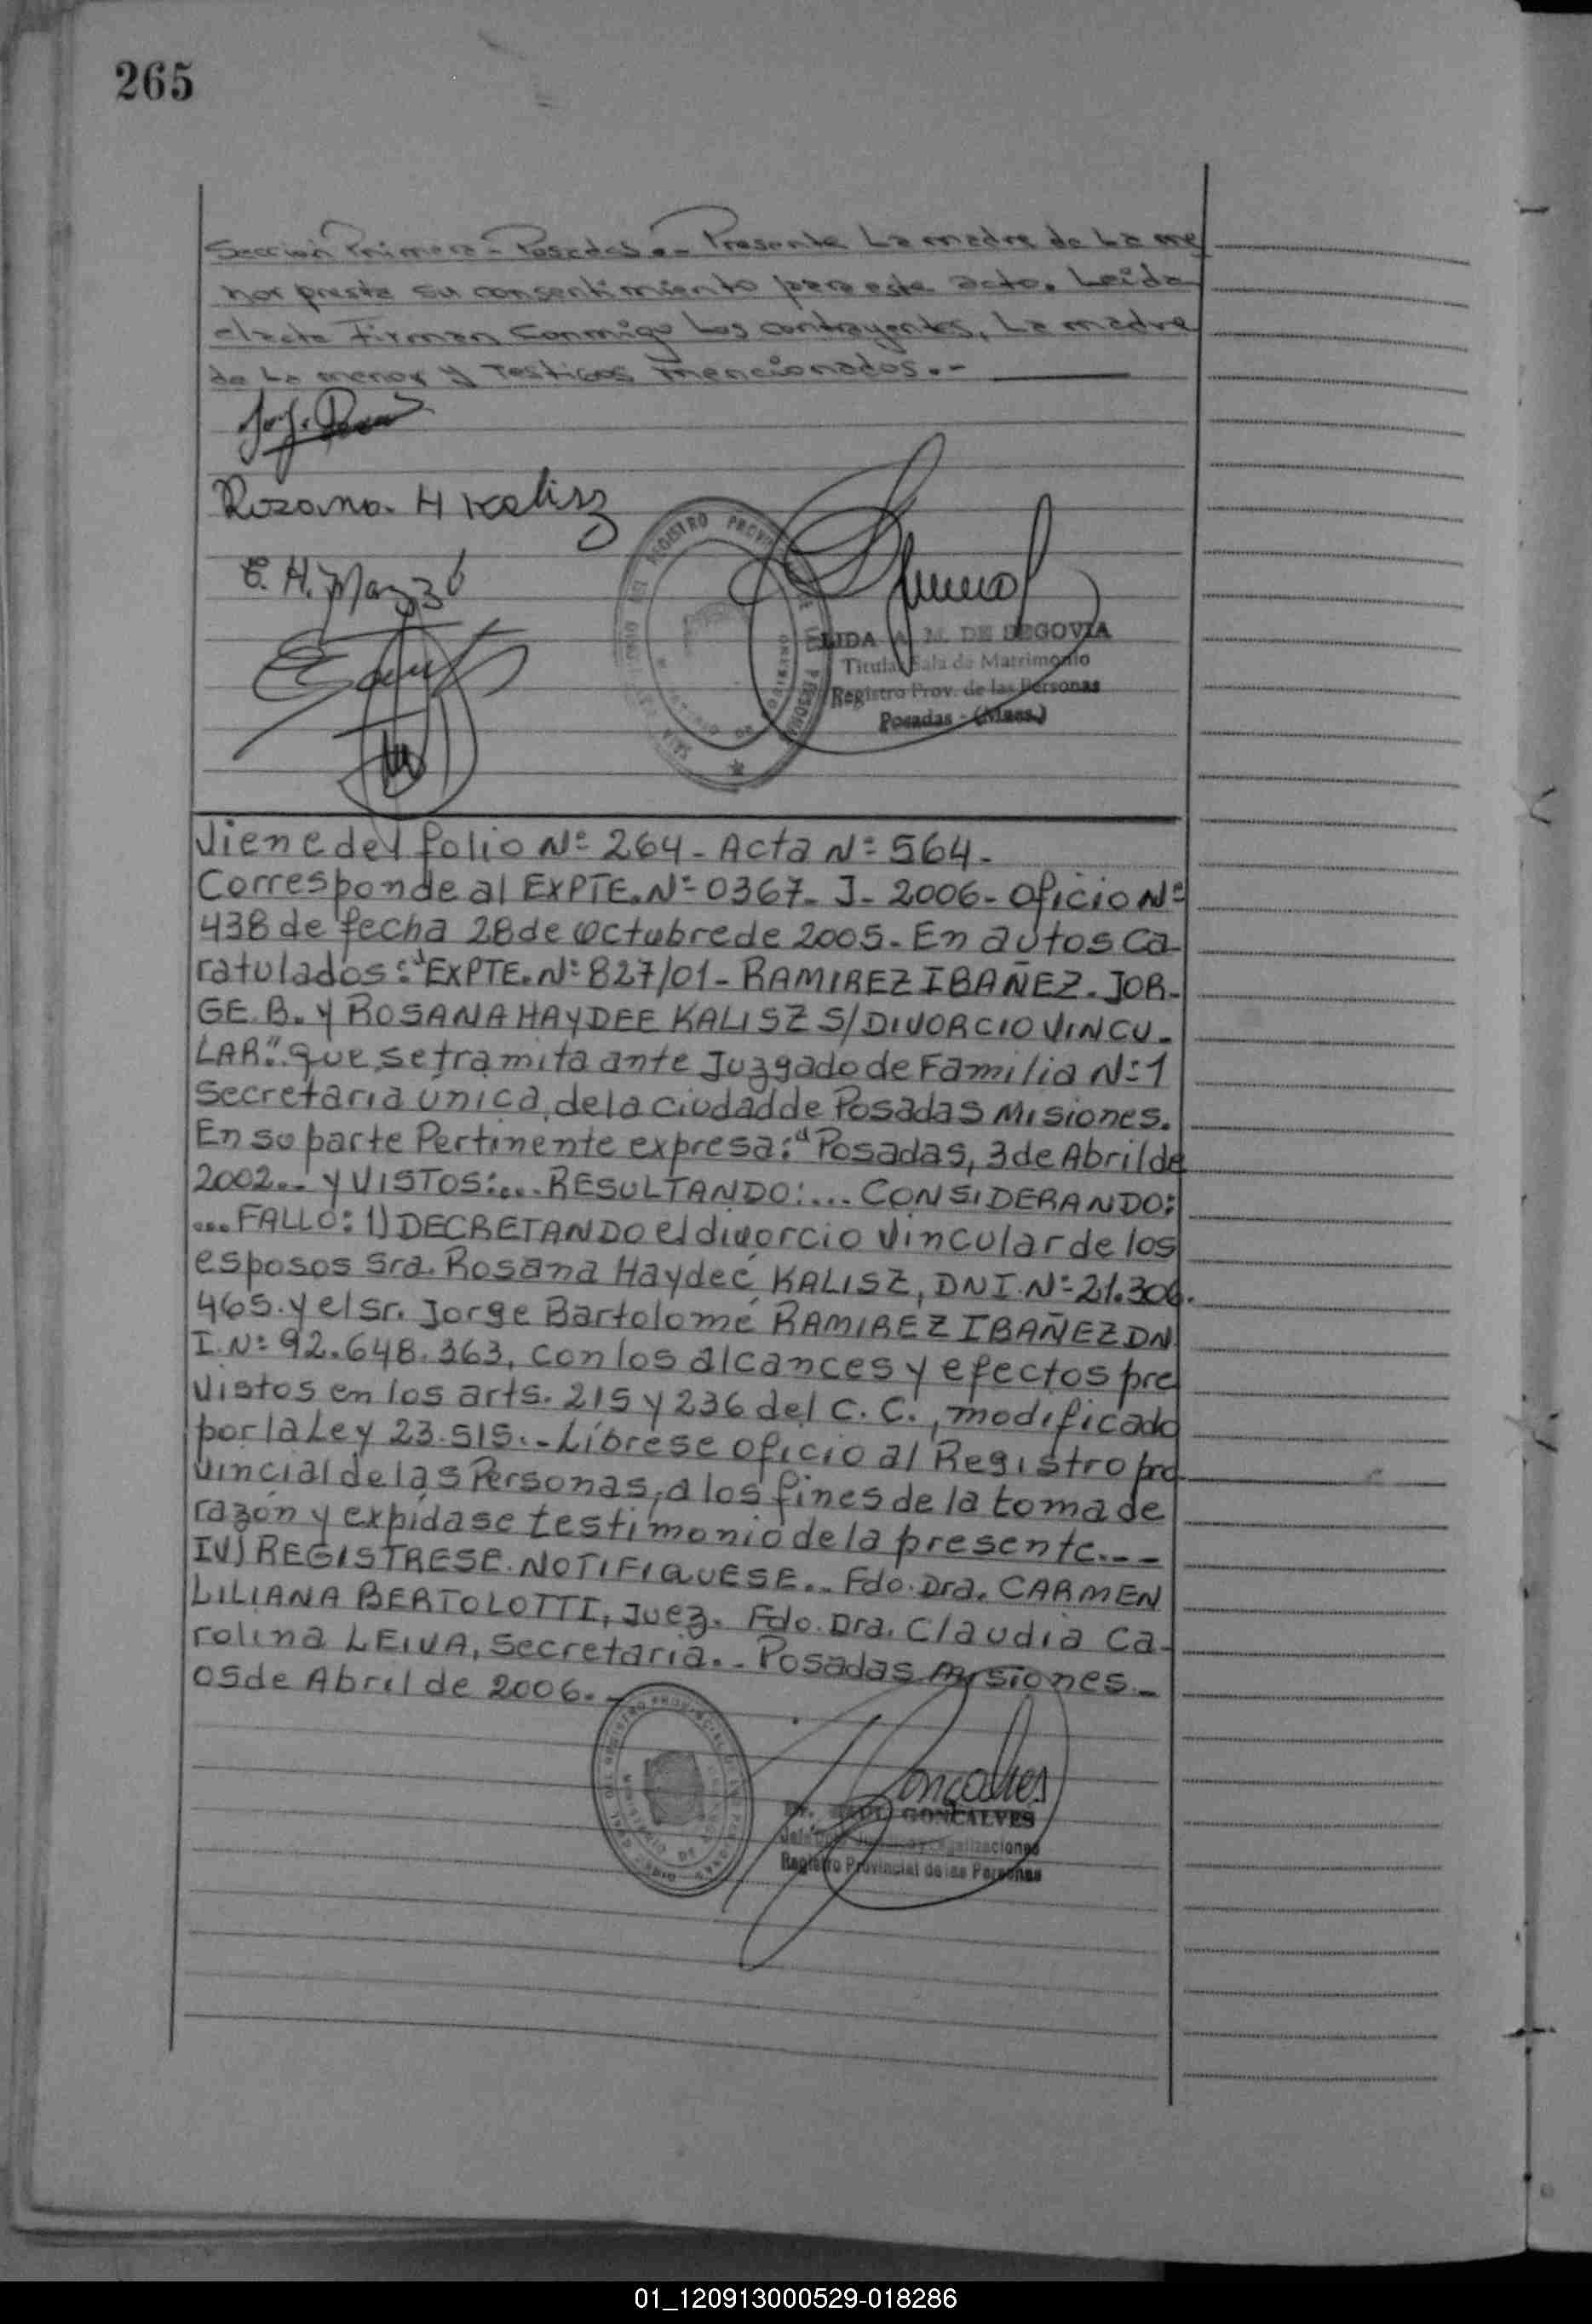 265
Sección Primera - Posadas.- Presente La madre de La me
nor presta su consentimiento para este acto. Leída
el acta Firman Conmigo Los contrayentes, La madre
de La menor y Testigos mencionados.-
Rozana. H Kalisz
E. H. Mazzó
REGISTRO PROVINCIAL DE LAS PERSONAS
LIDA A. M. DE SEGOVIA
Titular Sala de Matrimonio
Registro Prov. de las Personas
Posadas - (Mnes.)
Viene del folio Nº 264 - Acta Nº 564 -
Corresponde al EXPTE. Nº 0367 - J - 2006 - Oficio Nº
438 de fecha 28 de Octubre de 2005. En autos Ca-
ratulados: "EXPTE. Nº 827/01 - RAMIREZ IBAÑEZ. JOR-
GE. B. Y ROSANA HAYDEE KALISZ S/ DIVORCIO VINCU-
LAR". que se tramita ante Juzgado de Familia Nº 1
Secretaría única, de la Ciudad de Posadas Misiones.
En su parte Pertinente expresa: "Posadas, 3 de Abril de
2002.- Y VISTOS:... RESULTANDO:... CONSIDERANDO:
...FALLO: 1) DECRETANDO el divorcio Vincular de los
esposos Sra. Rosana Haydeé KALISZ, DNI. Nº 21.306.
465. y el Sr. Jorge Bartolomé RAMIREZ IBAÑEZ DN
I. Nº 92.648.363, con los alcances y efectos pre
Vistos en los arts. 215 y 236 del C. C., modificado
por la Ley 23.515.- Líbrese oficio al Registro pro
vincial de las Personas, a los fines de la toma de
razón y expídase testimonio de la presente.--
IV) REGISTRESE. NOTIFIQUESE.- Fdo. Dra. CARMEN
LILIANA BERTOLOTTI, Juez. Fdo. Dra. Claudia Ca-
rolina LEIVA, Secretaria.- Posadas Misiones.-
05 de Abril de 2006.-
Goncalves
GONCALVES
Registro Provincial de las Personas
01_120913000529-018286